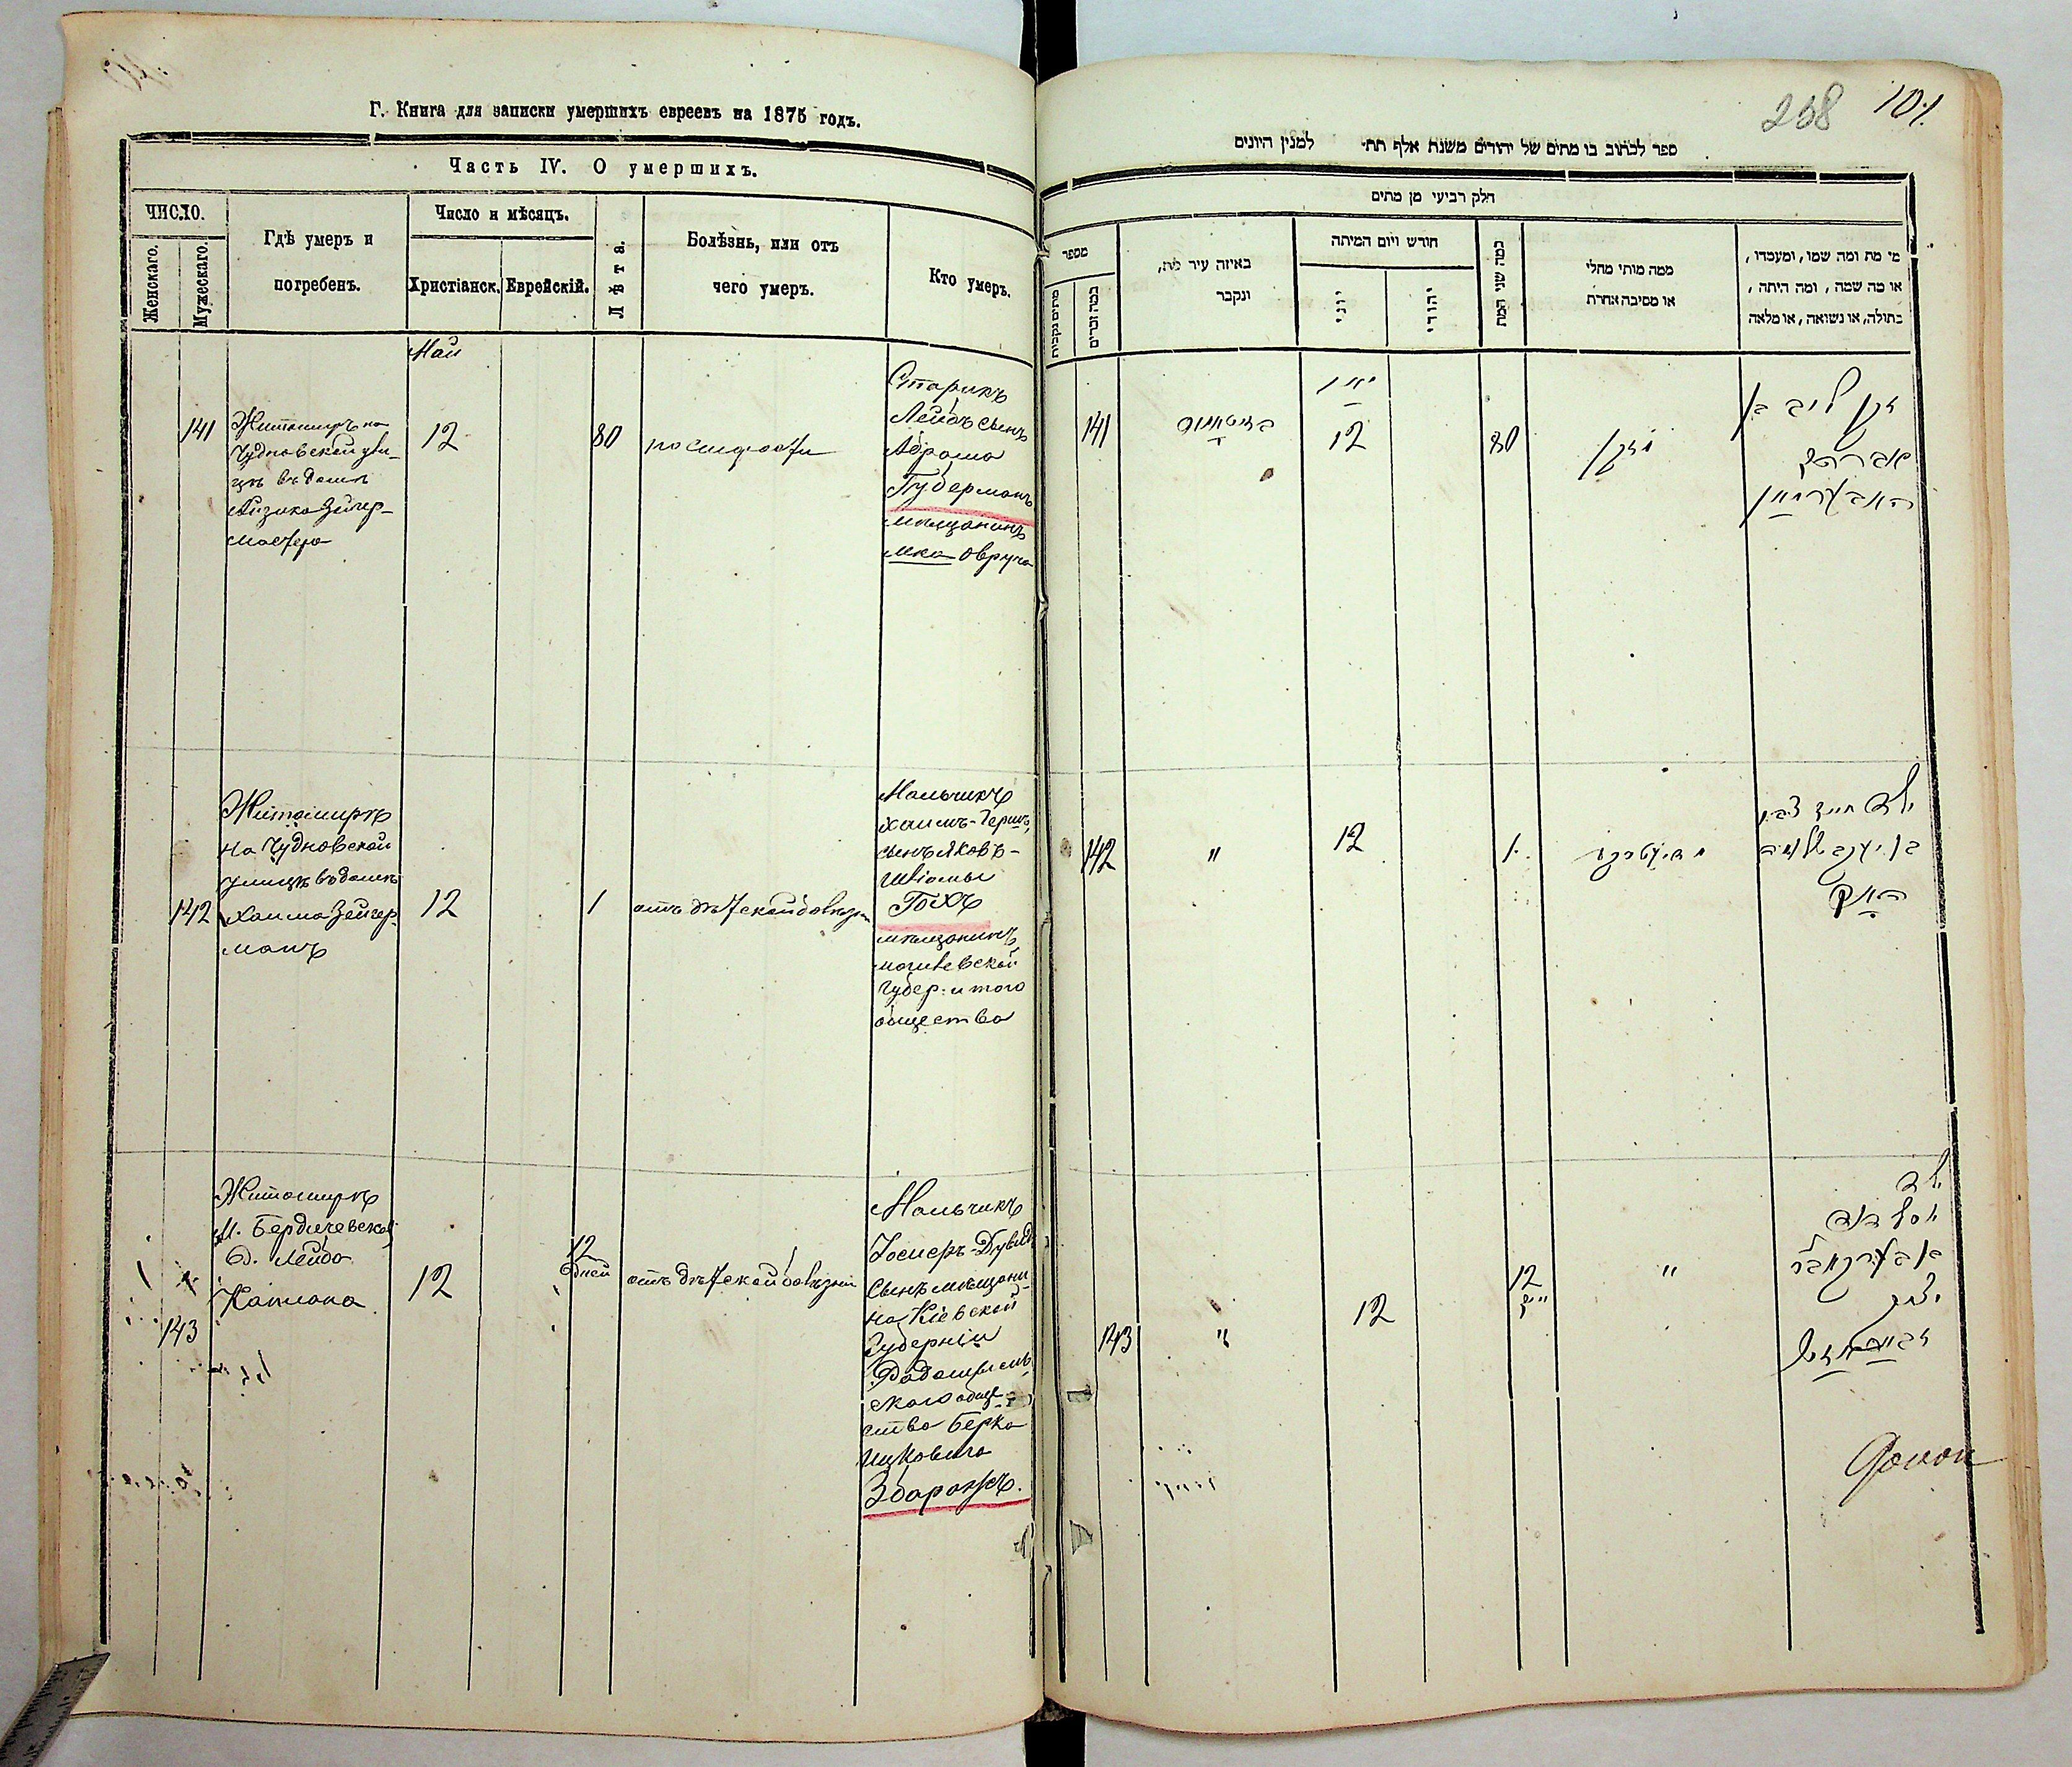 Г. Книга для записки умершихъ евреевъ на 1875 годъ.
Часть IV. О умершихъ.
ЧИСЛО.
Женскаго.
Мужескаго.
Гдѣ умеръ и
погребенъ.
Число и мѣсяцъ.
Христіанск.
Еврейскій.
Лѣта.
Болѣзнь, или отъ
чего умеръ.
Кто умеръ.
Маи
141
Житомиръ на
Чудновской ули-
цѣ въ домѣ
Айзика Зейгер-
мастера
12
80
по старости
Старикъ
Лейбъ сынъ
Абрама
Губерманъ
мѣщанинъ
мка Овруча
142
Житомиръ
на Чудновской
улицѣ въ домѣ
Хаима Зейгер
манъ
12
1
отъ дѣтской болѣзни
Мальчикъ
Хаимъ-Гершъ
сынъ Яковъ-
Шліомы
Гохъ
мѣщанинъ
могилевской
губер: и того
общества
143
Житомиръ
М. Бердичевской
д. Лейба
Каплана
12
12
дней
отъ дѣтской болѣзни
Мальчикъ
Іосперъ-Дувидъ
сынъ мѣщани-
на Кіевской
Губерніи
Радомысль
скаго обще-
ства Берка
Ицковича
Збаражъ.
258 101.
ספר לכתוב בו מתים של יהודים משנת אלף תת׳ למנין היונים
חלק רביעי מן מתים
מספר
מתים נקבות
כמה זכרים
באיזה עיר מת,
ונקבר
חודש ויום המיתה
יוני
יהודי
כמה שני המת
ממה מותי מחלי
או מסיבה אחרת
מי מת ומה שמו, ומעמדו,
או מה שמה, ומה היתה,
בתולה, או נשואה, או מלאה
141
זיטאמיר
12
80
זקן
זקן ליב בן
אברהם
האבערמאן
142
"
12
1.
ילד חיים צבי
בן יעקב שלמה
האך
143
"
12
12
"
ילד
בן בערקא ב״ר
יצחק